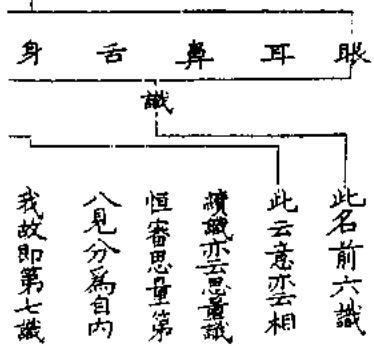 眼 耳 鼻 舌 身
識
此名前六識
此云意亦云相
續識亦云思量識
恒審思量第
八見分爲自内
我故即第七識